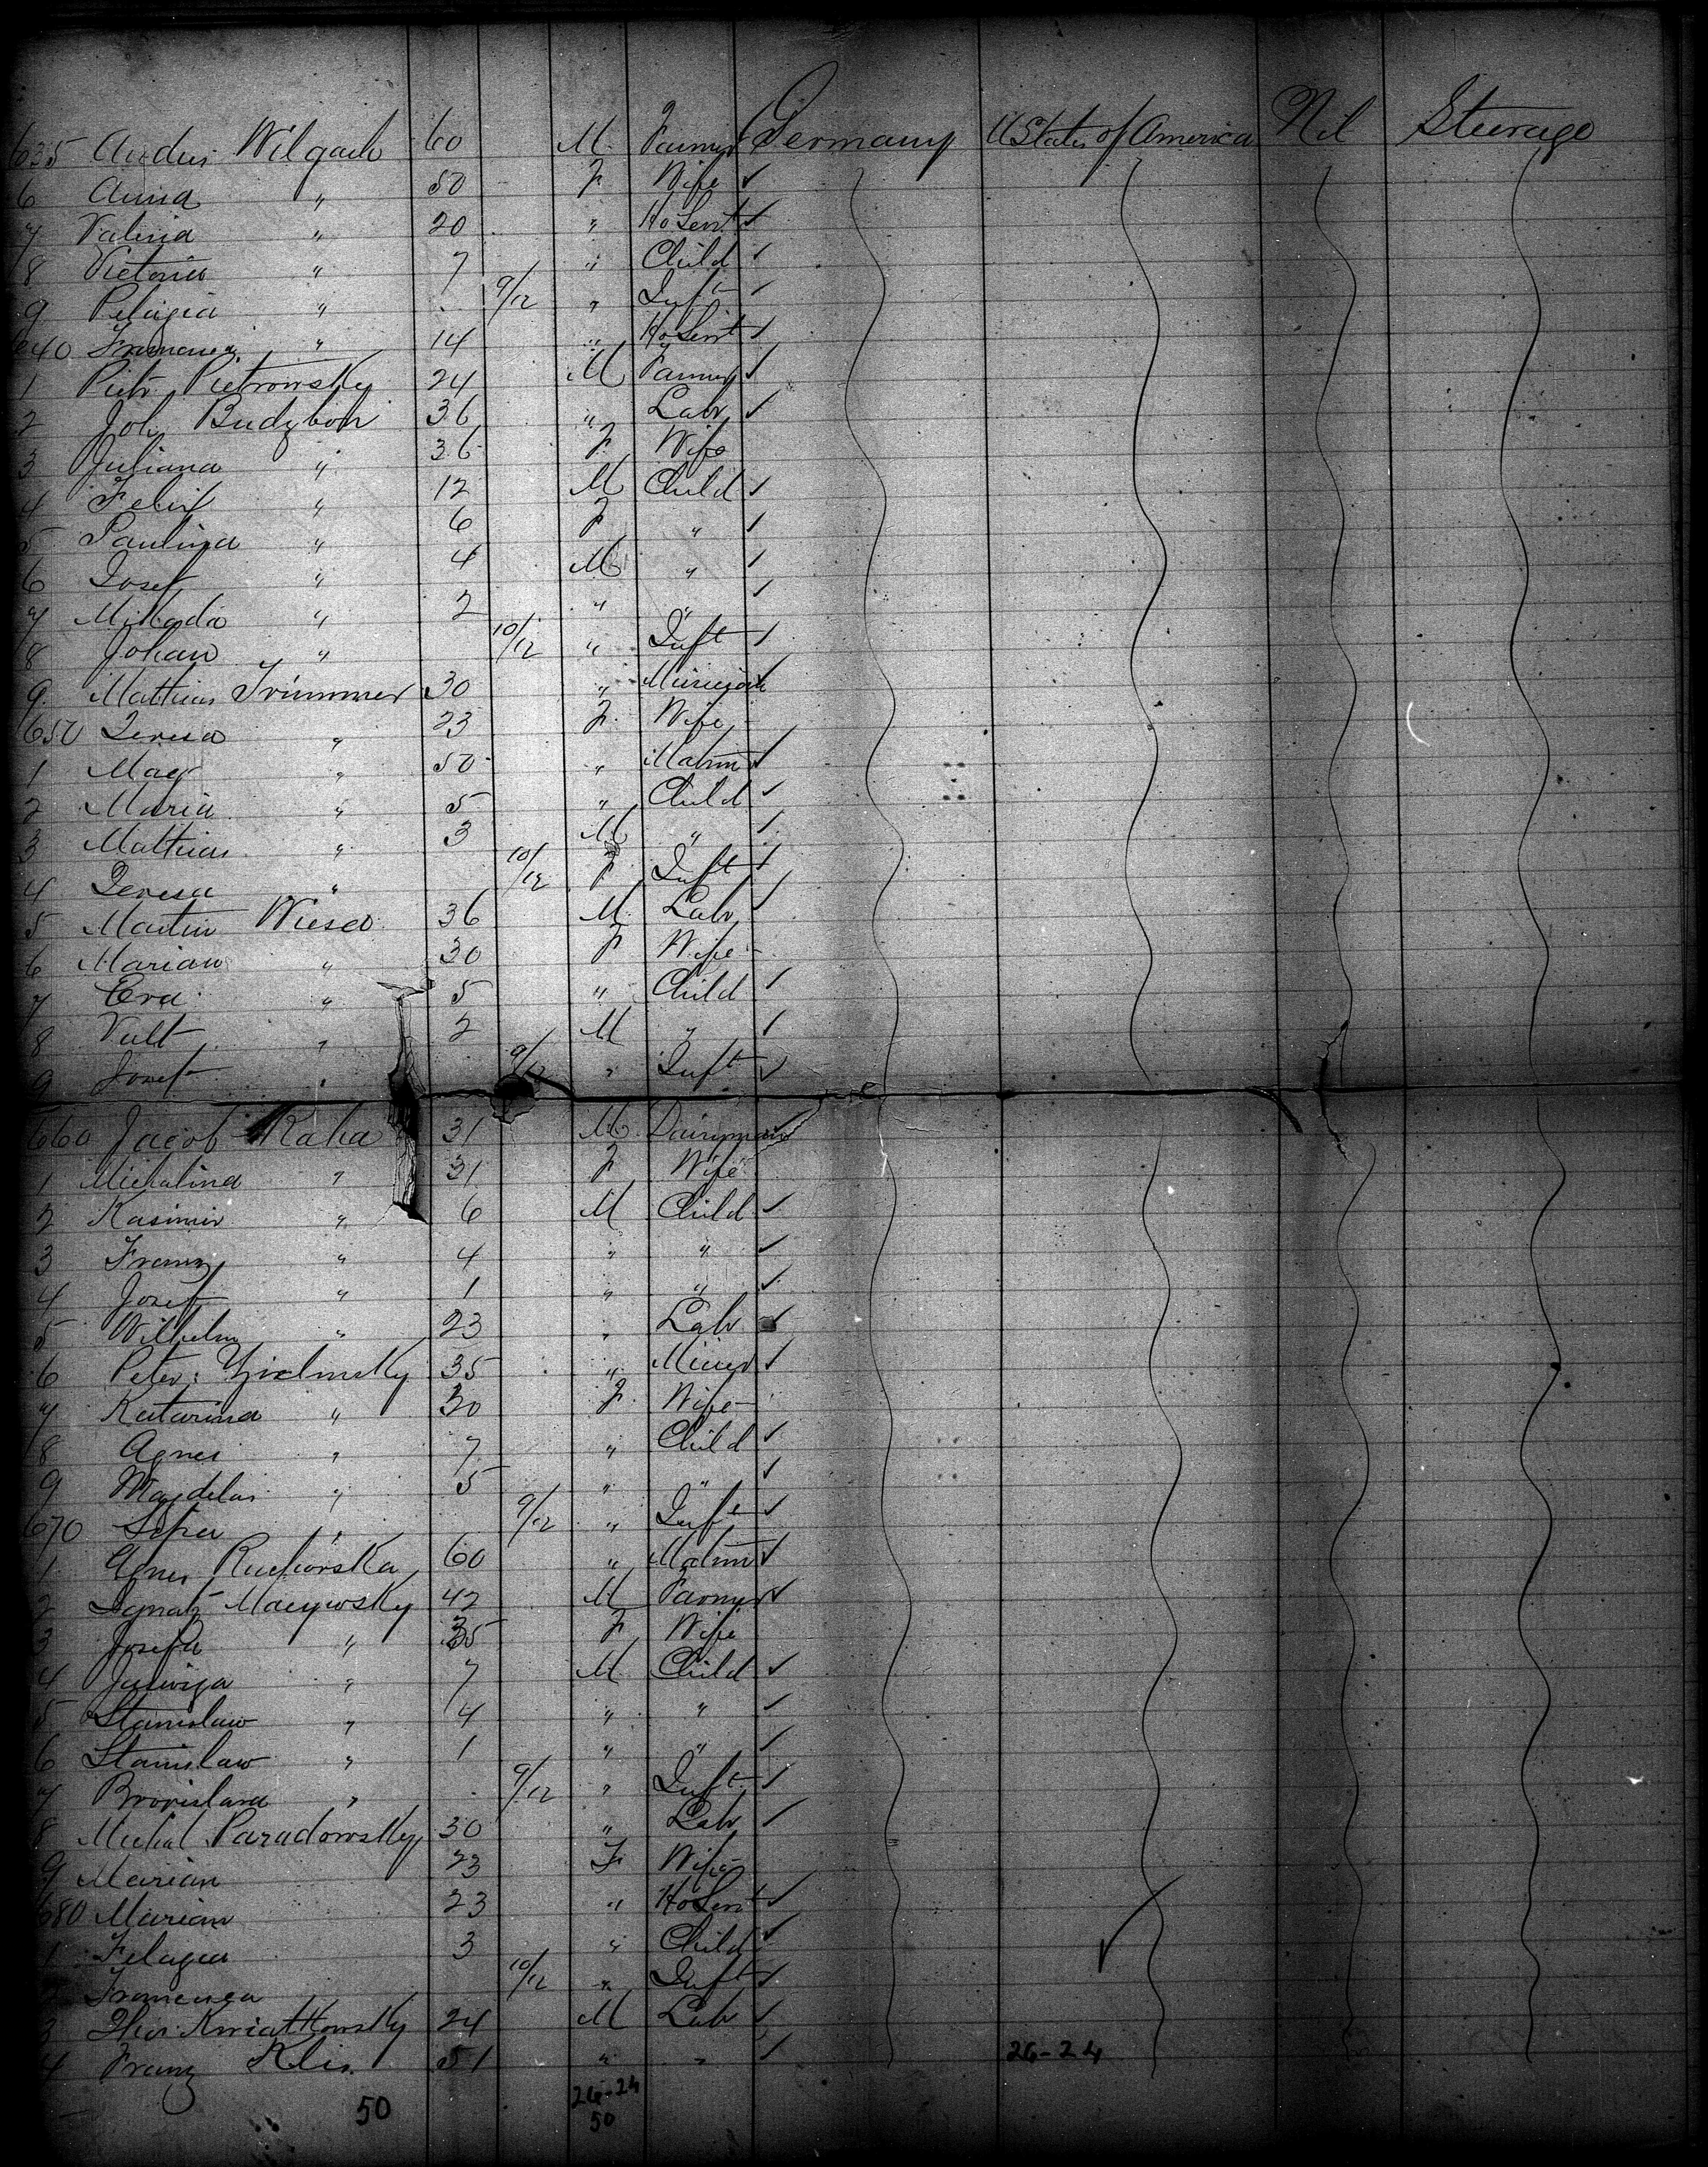 635 Andus Wilgach 60 M. Farmer Germany U States of America Nil Steerage
6 Anna " 50 F Wife ✓
7 Valeria " 20 " Ho Servt ✓
8 Victoria " 7 " Child ✓
9 Pelagia " 9/12 " Inft ✓
640 " 14 " Ho Servt ✓
1 Pietr Pietrowsky 24 M Farmer ✓
2 Joh Budzboh 36 " Labr ✓
3 Juliana " 36 F. Wife
4 Felix " 12 M Child ✓
5 Paulina " 6 F " ✓
6 Josef " 4 M " ✓
7 " 2 " " ✓
8 Johan " 10/12 " Inft ✓
9. Mathias Trimmer 30 " ✓
650 Teresa " 23 F. Wife
1 Mag " 50 " Matrn ✓
2 Maria " 5 " Child ✓
3 Mathias " 3 M " ✓
4 Teresa " 10/12 F Inft ✓
5 Martin 36 M. Labr ✓
6 Marian " 30 F Wife
7 Eva " 5 " Child ✓
8 Valt " 2 M " ✓
9 Josef " 9/12 " Inft ✓
660 Jacob Kaha 31 M. Dairyman ✓
1 Michalina " 31 F Wife
2 Kasimir " 6 M Child ✓
3 Franz " 4 " " ✓
4 Josef " 1 " " ✓
5 Wilhelm " 23 " Labr ✓
6 Peter 35 " Miner ✓
7 Katarina " 30 F. Wife
8 Agnes " 7 " Child ✓
9 Magdelas " 5 " " ✓
670 " 9/12 " Inft ✓
1 Agnes 60 " Matrn ✓
2 Ignatz 42 M Farmer ✓
3 Josefa " 35 F Wife
4 " 7 M Child ✓
5 Stanislaw " 4 " " ✓
6 Stanislaw " 1 " " ✓
7 Bronislava " 9/12 " Inft ✓
8 Michal Paradowsky 30 " Labr ✓
9 Marian 23 F Wife
680 Marian 23 " Ho Servt ✓
1 Felagia 3 " Child ✓
2 10/12 " Inft ✓
3 Kwiatkowsky 24 M Labr ✓
4 Franz Klis. 51 " " ✓ 26-24
50 26-24
50